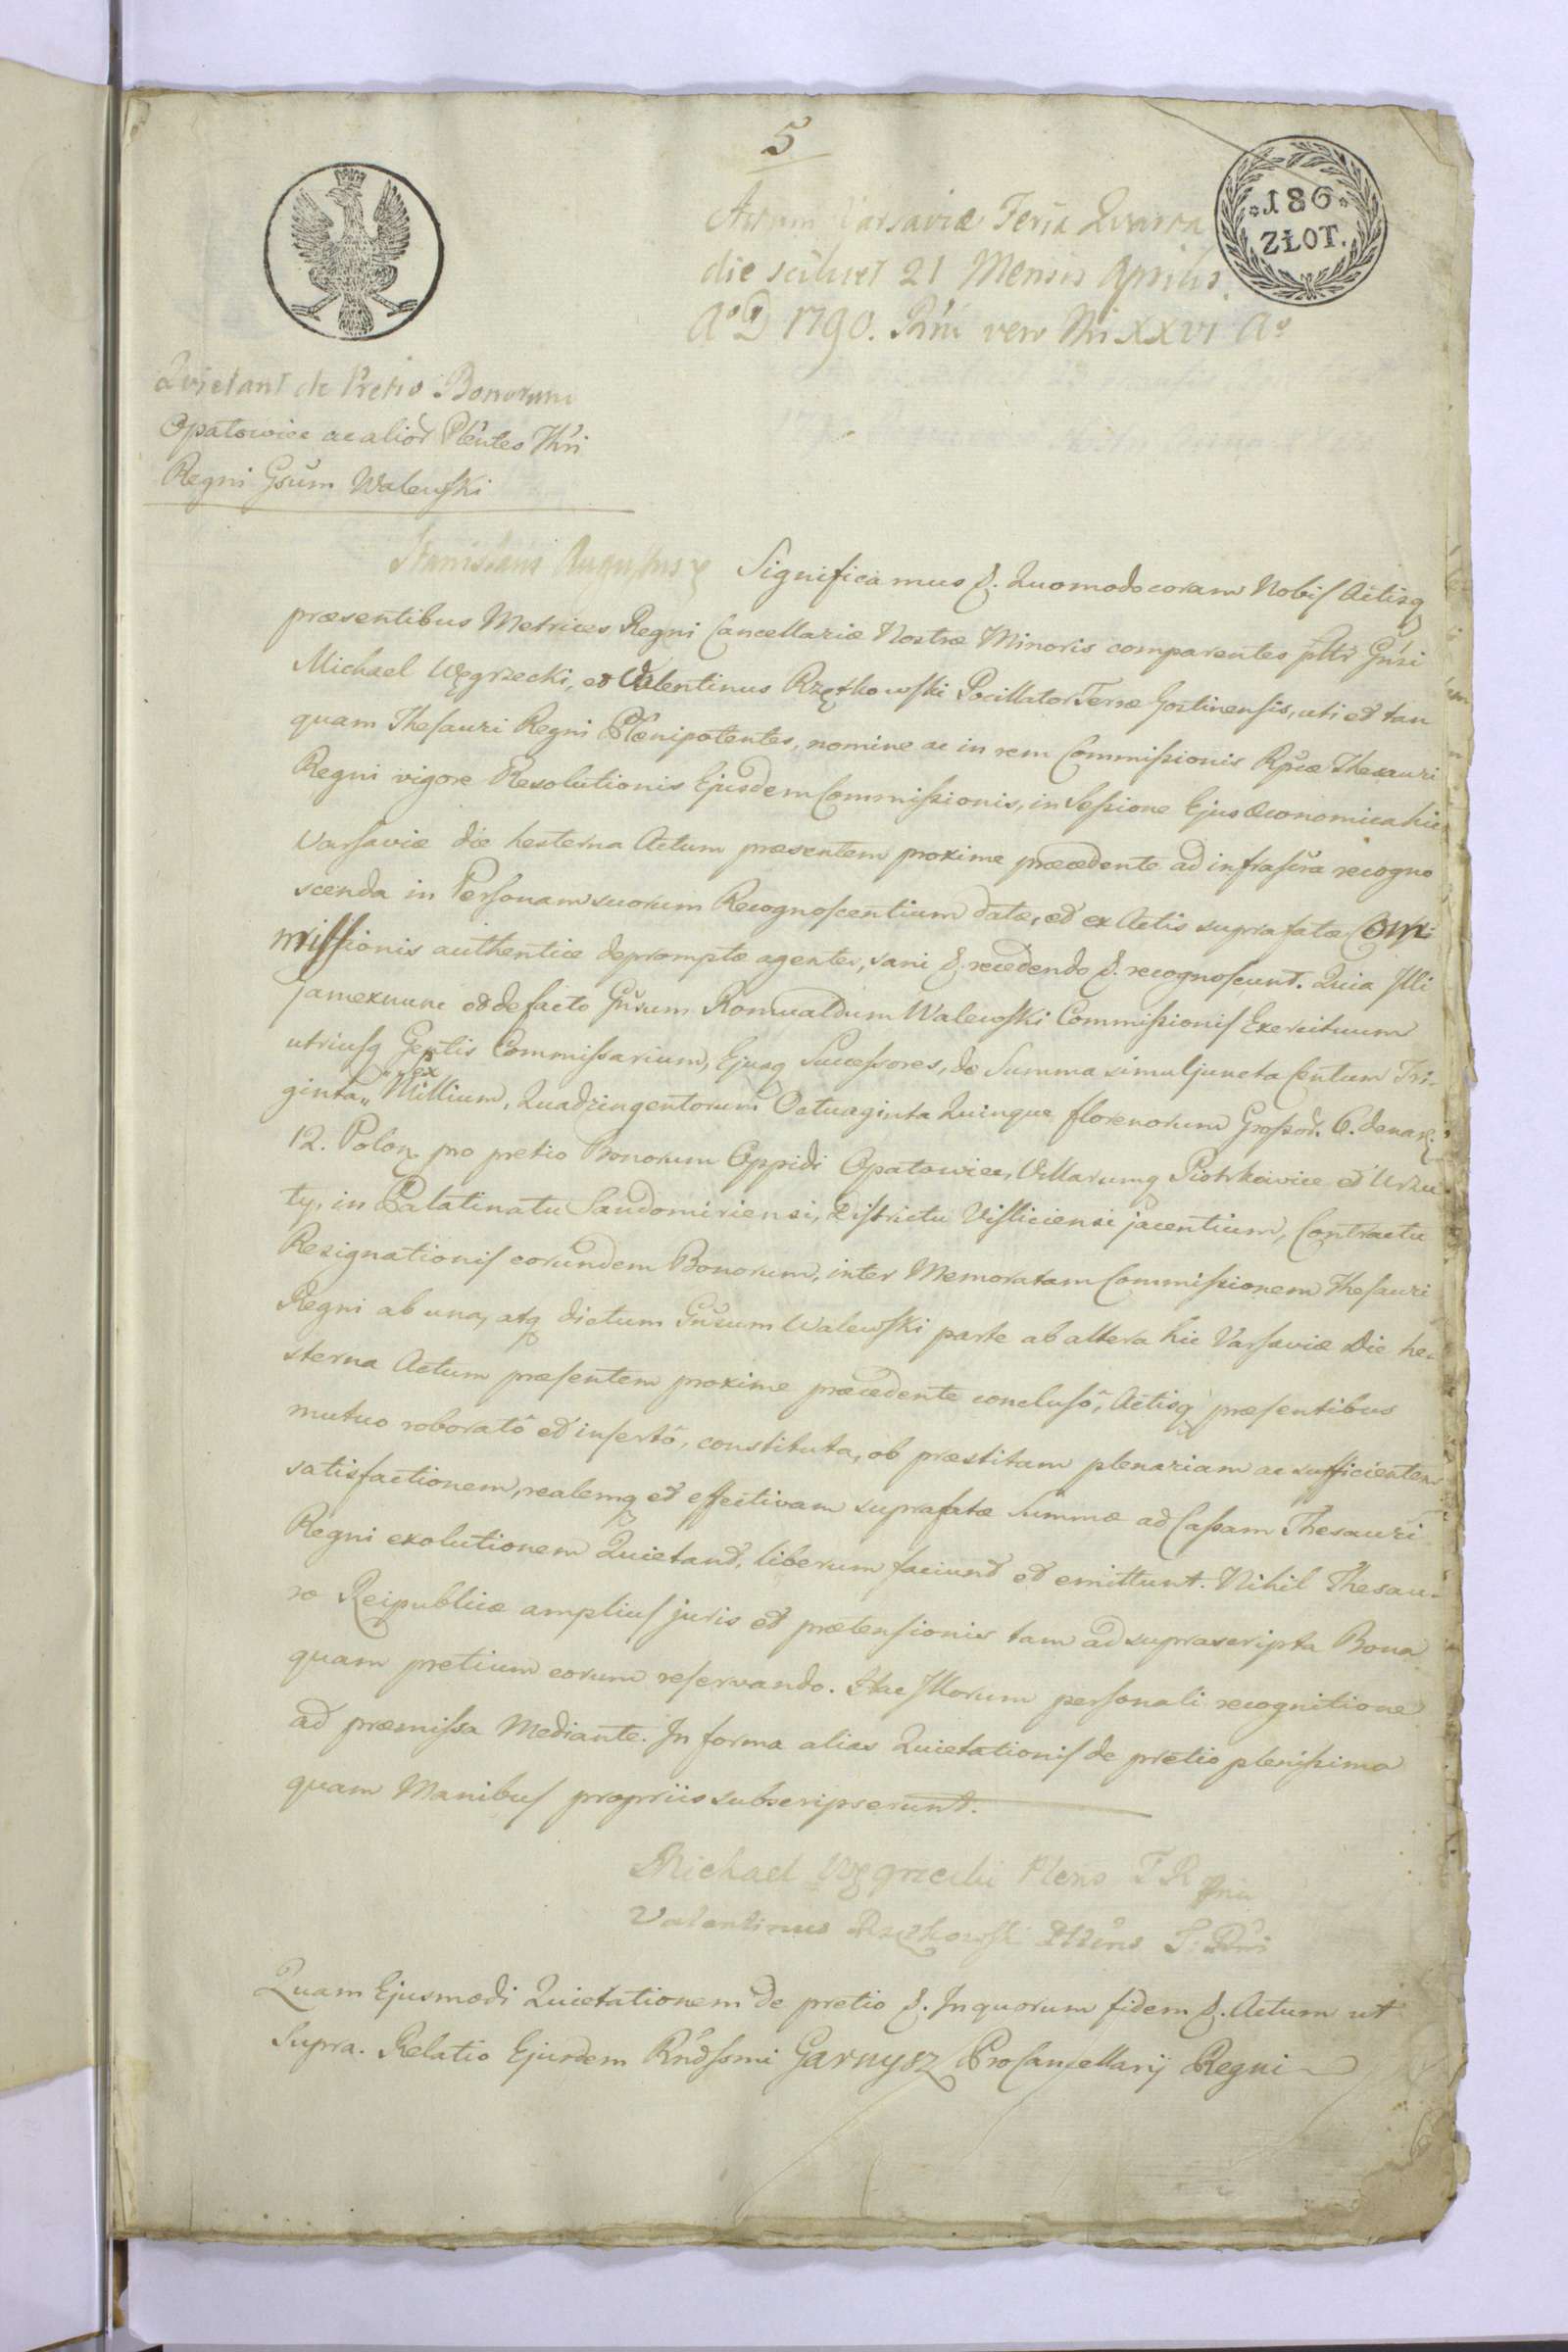 5
186
ZŁOT.
Actum Varsaviæ Feria Quarta
die scilicet 21 Mensis Aprilis
A°D 1790. Rńi vero Nri XXVI A°
Quietant de Pretio Bonorum
Opatowice ac alior Pleñtes Thri
Regni Gsum Walewski
Stanislaus Augustus &
Significamus &. Quomodo coram Nobis Actisq
præsentibus Metrices Regni Cancellariæ Nostræ Minoris comparentes pltr Gnsi
Michael Węgrzecki, et Valentinus Rzętkowski Pocillator Terræ Gostinensis, uti et tan
quam Thesauri Regni Plænipotentes, nomine ac in rem Commissionis Rpcæ Thesauri
Regni vigore Resolutionis Ejusdem Commissionis, in Sessione Ejus Œconomica hic
Varsaviæ die hesterna Actum præsentem proxime præcedente ad infrascra recogno
scenda in Personam suorum Recognoscentium datæ, et ex Actis suprafatæ Com
missionis authentice depromptæ agentes, sani &. recedendo &. recognoscunt. Quia Illi
jam ex nunc et de facto Gnsum Romualdum Walewski Commissionis Exercituum
utriusq Gentis Commissarium, Ejusq Successores, de Summa simul juncta Centum Tri-
ginta„ sex Millium, Quadringentorum Octuaginta Quinque florenorum Grossor. 6. denar.
12. Polon. pro pretio Bonorum Oppidi Opatowice, Villarumq Piotrkowice et Urzu
ty, in Palatinatu Sandomiriensi, Districtu Visliciensi jacentium, Contractu
Resignationis eorundem Bonorum, inter Memoratam Commissionem Thesauri
Regni ab una, atq dictum Gnsum Walewski parte ab altera hic Varsaviæ Die he-
sterna Actum præsentem proxime præcedente conclusô, Actisq præsentibus
mutuo roboratô et insertô, constituta, ob præstitam plenariam ac sufficientem
satisfactionem, realemq et effectivam suprafatæ Summæ ad Cassam Thesauri
Regni exolutionem Quietant, liberum faciunt et emittunt. Nihil Thesau-
ro Reipublicæ amplius juris et prætensionis tam ad suprascripta Bona
quam pretium eorum reservando. Hac Illorum personali recognitione
ad præmissa Mediante. In forma alias Quietationis de pretio plenissima
quam Manibus propriis subscripserunt.
Michael Węgrzecki Plens T R
Valentinus Rzętkowski Plens T. Rńi
Quam Ejusmodi Quietationem de pretio &. In quorum fidem &. Actum ut
Supra. Relatio Ejusdem Rndssmi Garnysz ProCancellarij Regni